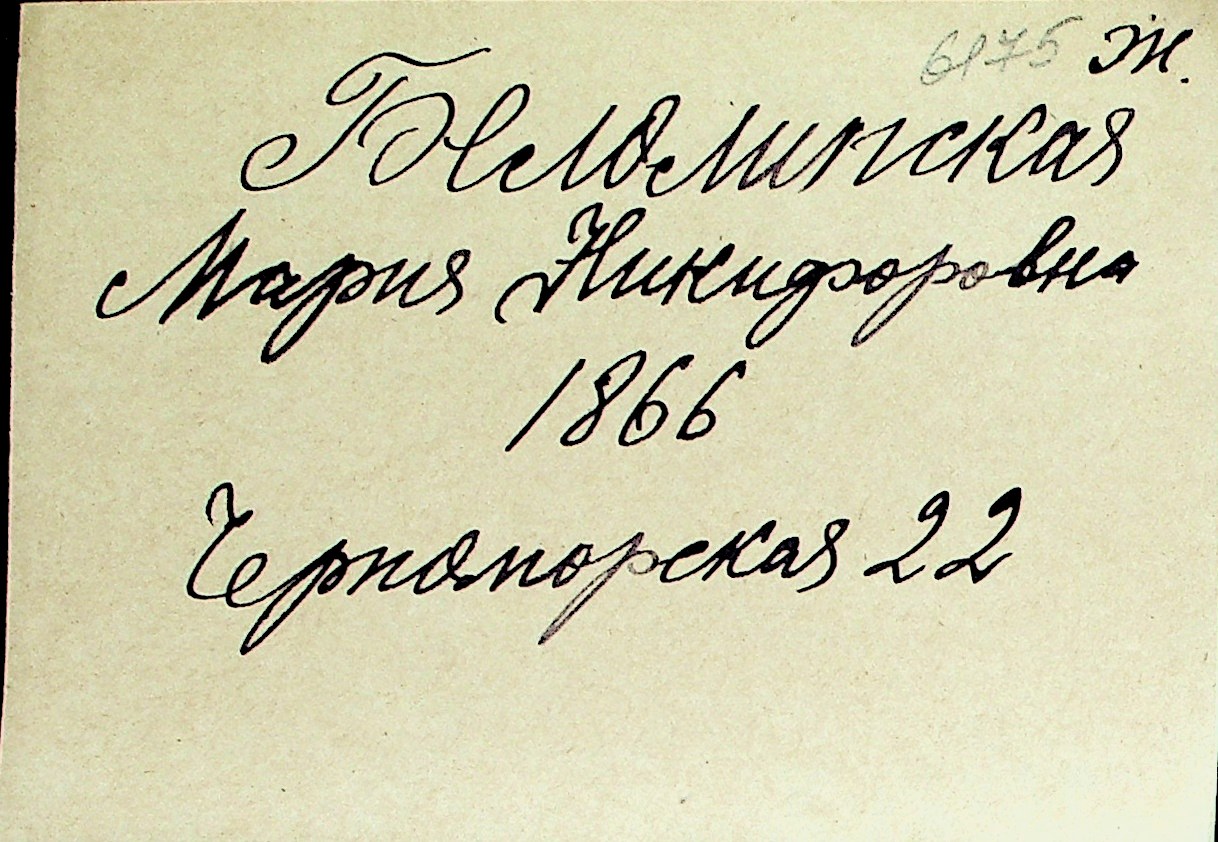 6175 Ж.
Беломинская
Мария Никифоровна
1866
Черноморская 22